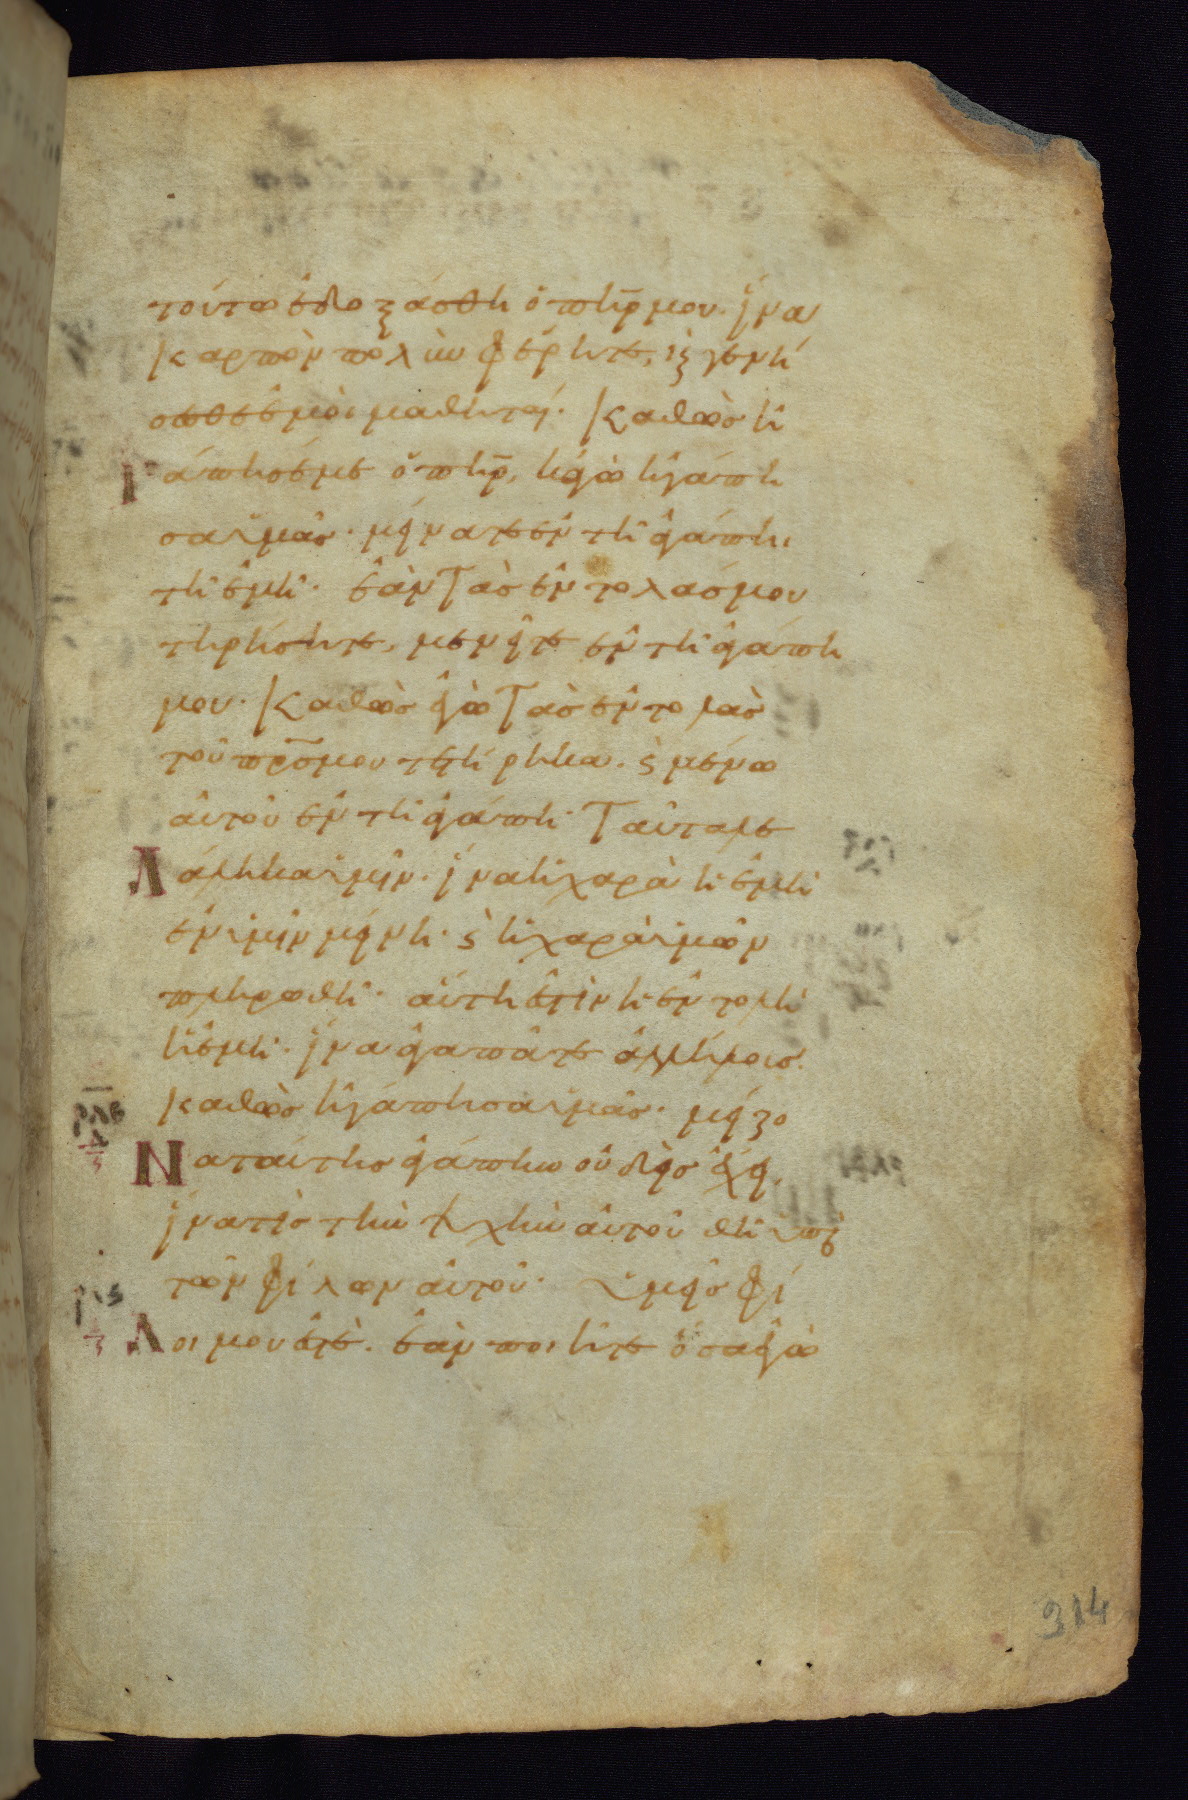 τούτω ἐδοξάσθη ὁ πηρ μου. ἵνα
καρπὸν πολὺν φέρητε, κ γενή
σεσθε ἐμοὶ μαθηταί. Καθὼς ἠ
γάπησέ με ὁ πηρ, κἀγὼ ἠγάπη
σα ὑμᾶς. μείνατε ἐν τῆ ἀγάπη
τῆ ἐμῆ. ἐὰν τὰς ἐντολάς μου
τηρήσητε, μενεῖτε ἐν τῆ ἀγάπη
μου. Καθὼς ἐγὼ τὰς ἐντολὰς
τοῦ πρς μου τετήρηκα. κ μένω
αὐτοῦ ἐν τῆ ἀγάπη. Ταῦτα λε
Λάληκα ὑμῖν. ἵνα ἡ χαρὰ ἡ ἐμὴ
ἐν ὑμῖν μείνη. κ ἡ χαρὰ ὑμῶν
πληρωθῆ. αὕτη ἐστὶν ἡ ἐντολὴ
ἡ ἐμὴ. ἵνα ἀγαπᾶτε ἀλλήλους.
καθὼς ἠγάπησα ὑμᾶς. μείζο
Να ταύτης ἀγάπην οὐδεὶς ἔχει,
ἵνα τὶς τὴν ψυχὴν αὐτοῦ θῆ ὑπὲρ
τῶν φίλων αὐτοῦ. Ὑμεῖς φί
Λοι μου ἐστὲ. ἐὰν ποιῆτε ὅσα ἐγὼ
314